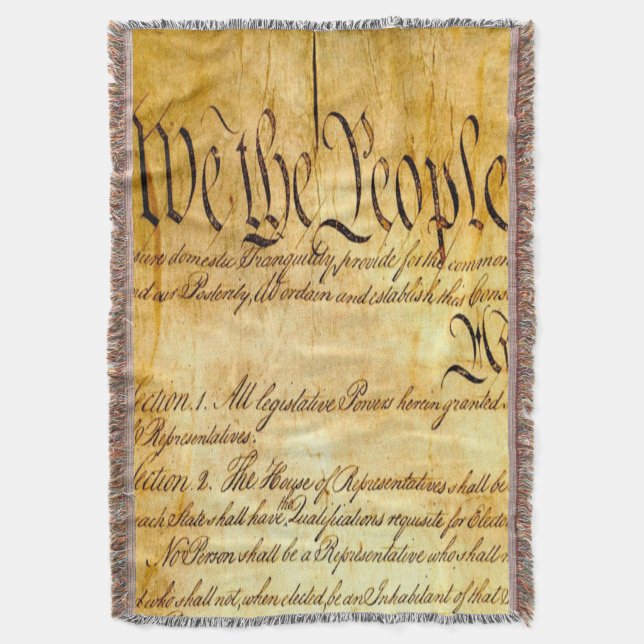 We the People
sure domestic Tranquility, provide for the common
nd our Posterity, do ordain and establish this Cons
ection. 1. All legislative Powers herein granted
Representatives.
ection. 2. The House of Representatives shall be
each State shall have the Qualifications requisite for Elector
No Person shall be a Representative who shall n
d who shall not, when elected, be an Inhabitant of that